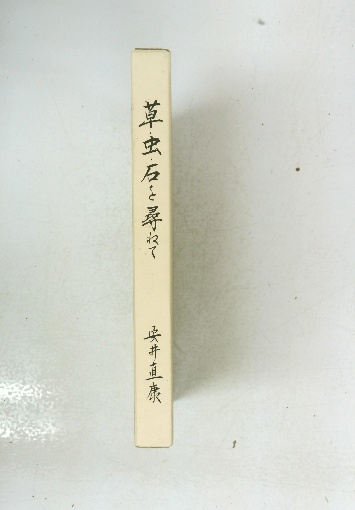 草・虫・石を尋ねて
安井直康